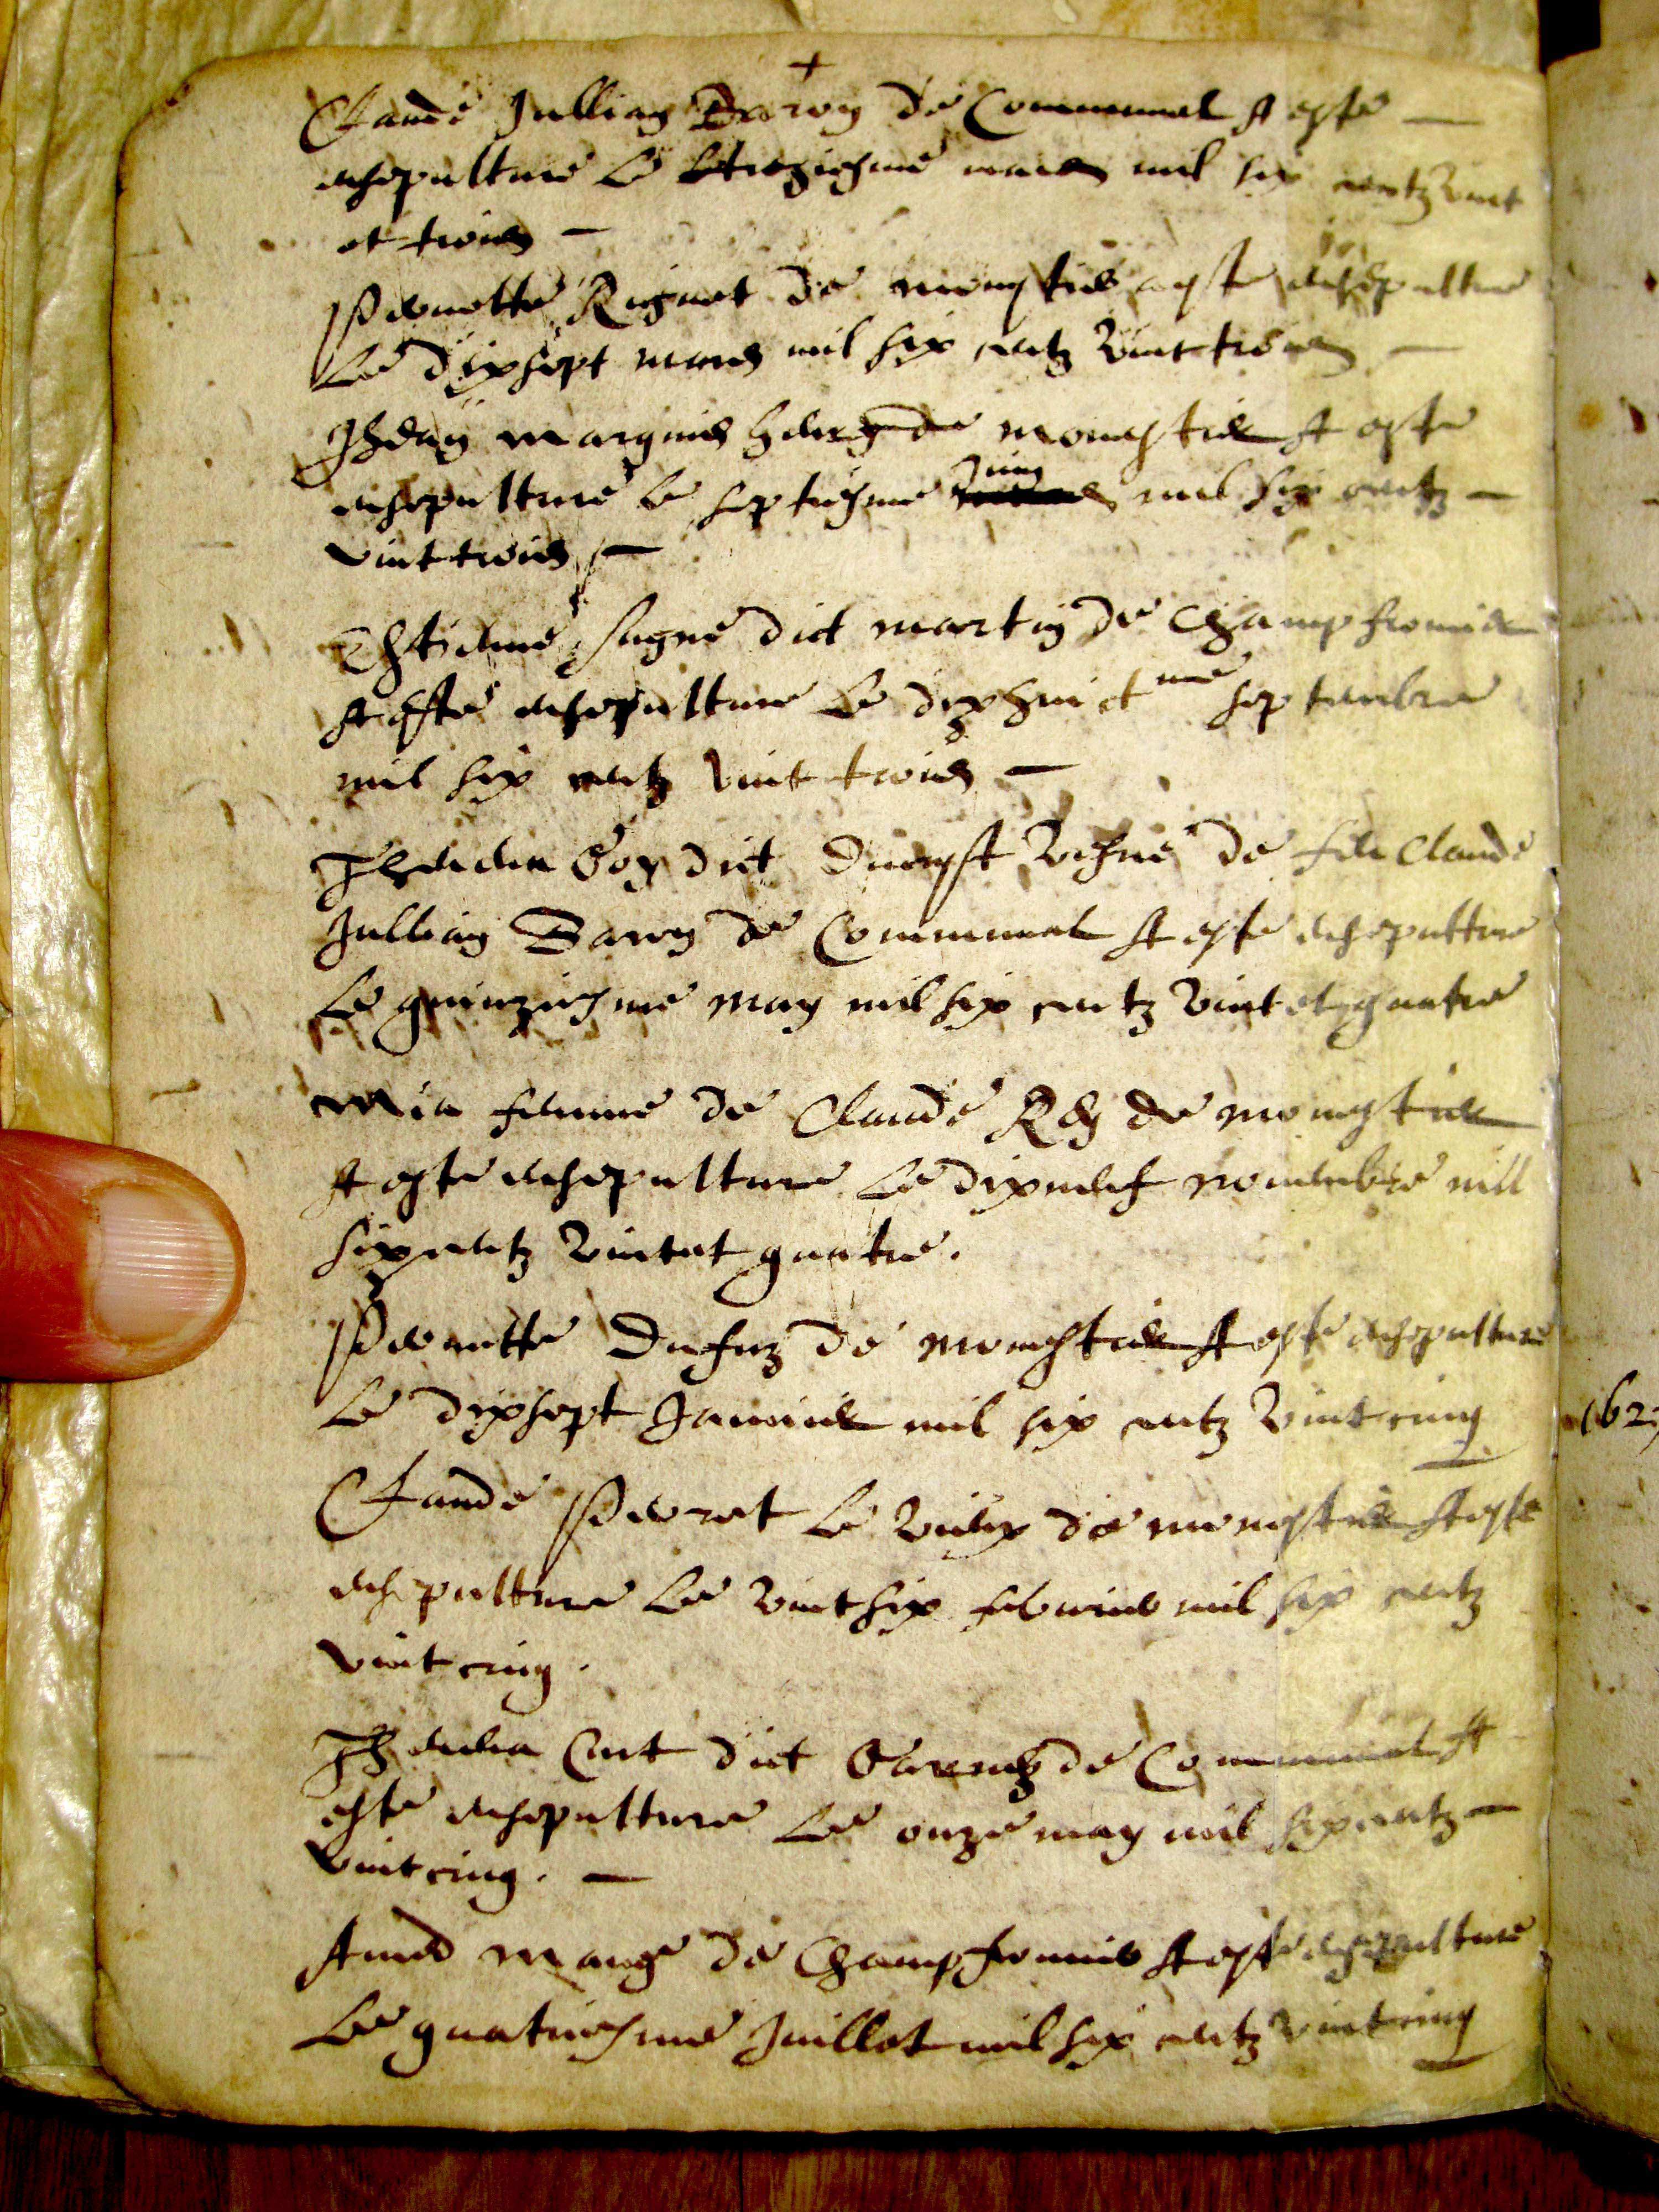 +
Claude Jullian Baron de Communal A este
ensepulture le treziesme mars mil six centz vint
et trois
Pernette Reignet de monestier a este ensepulture
Le dix sept mars mil six centz vint trois
Jehan marquis de monestier A este
ensepulture le septiesme Juing mil six centz
vint trois
Estienne sagne dict martin de Champfromier
A este ensepulture le dixhuictme septembre
mil six centz vint trois
Thevena Goy dict Ducrest vefve de feu Claude
Jullian Baron de Communal A este ensepulture
Le quinziesme may mil six centz vint et quatre
Mia femme de Claude Rey de monestier
A este ensepulture Le dixneuf novembre mill
six centz vint et quatre.
Pernette Ducruz de monestier A este ensepulture
Le dixsept Janvier mil six centz vint cinq
Claude Perret le vieux de monestier A este
ensepulture Le vint six febvrier mil six centz
vint cinq.
Thevena Cut dict de Communal A
este ensepulture Le onze may mil six centz
vint cinq.
Amed mange de Champfromier A este ensepulture
Le quatriesme Juillet mil six centz vint cinq